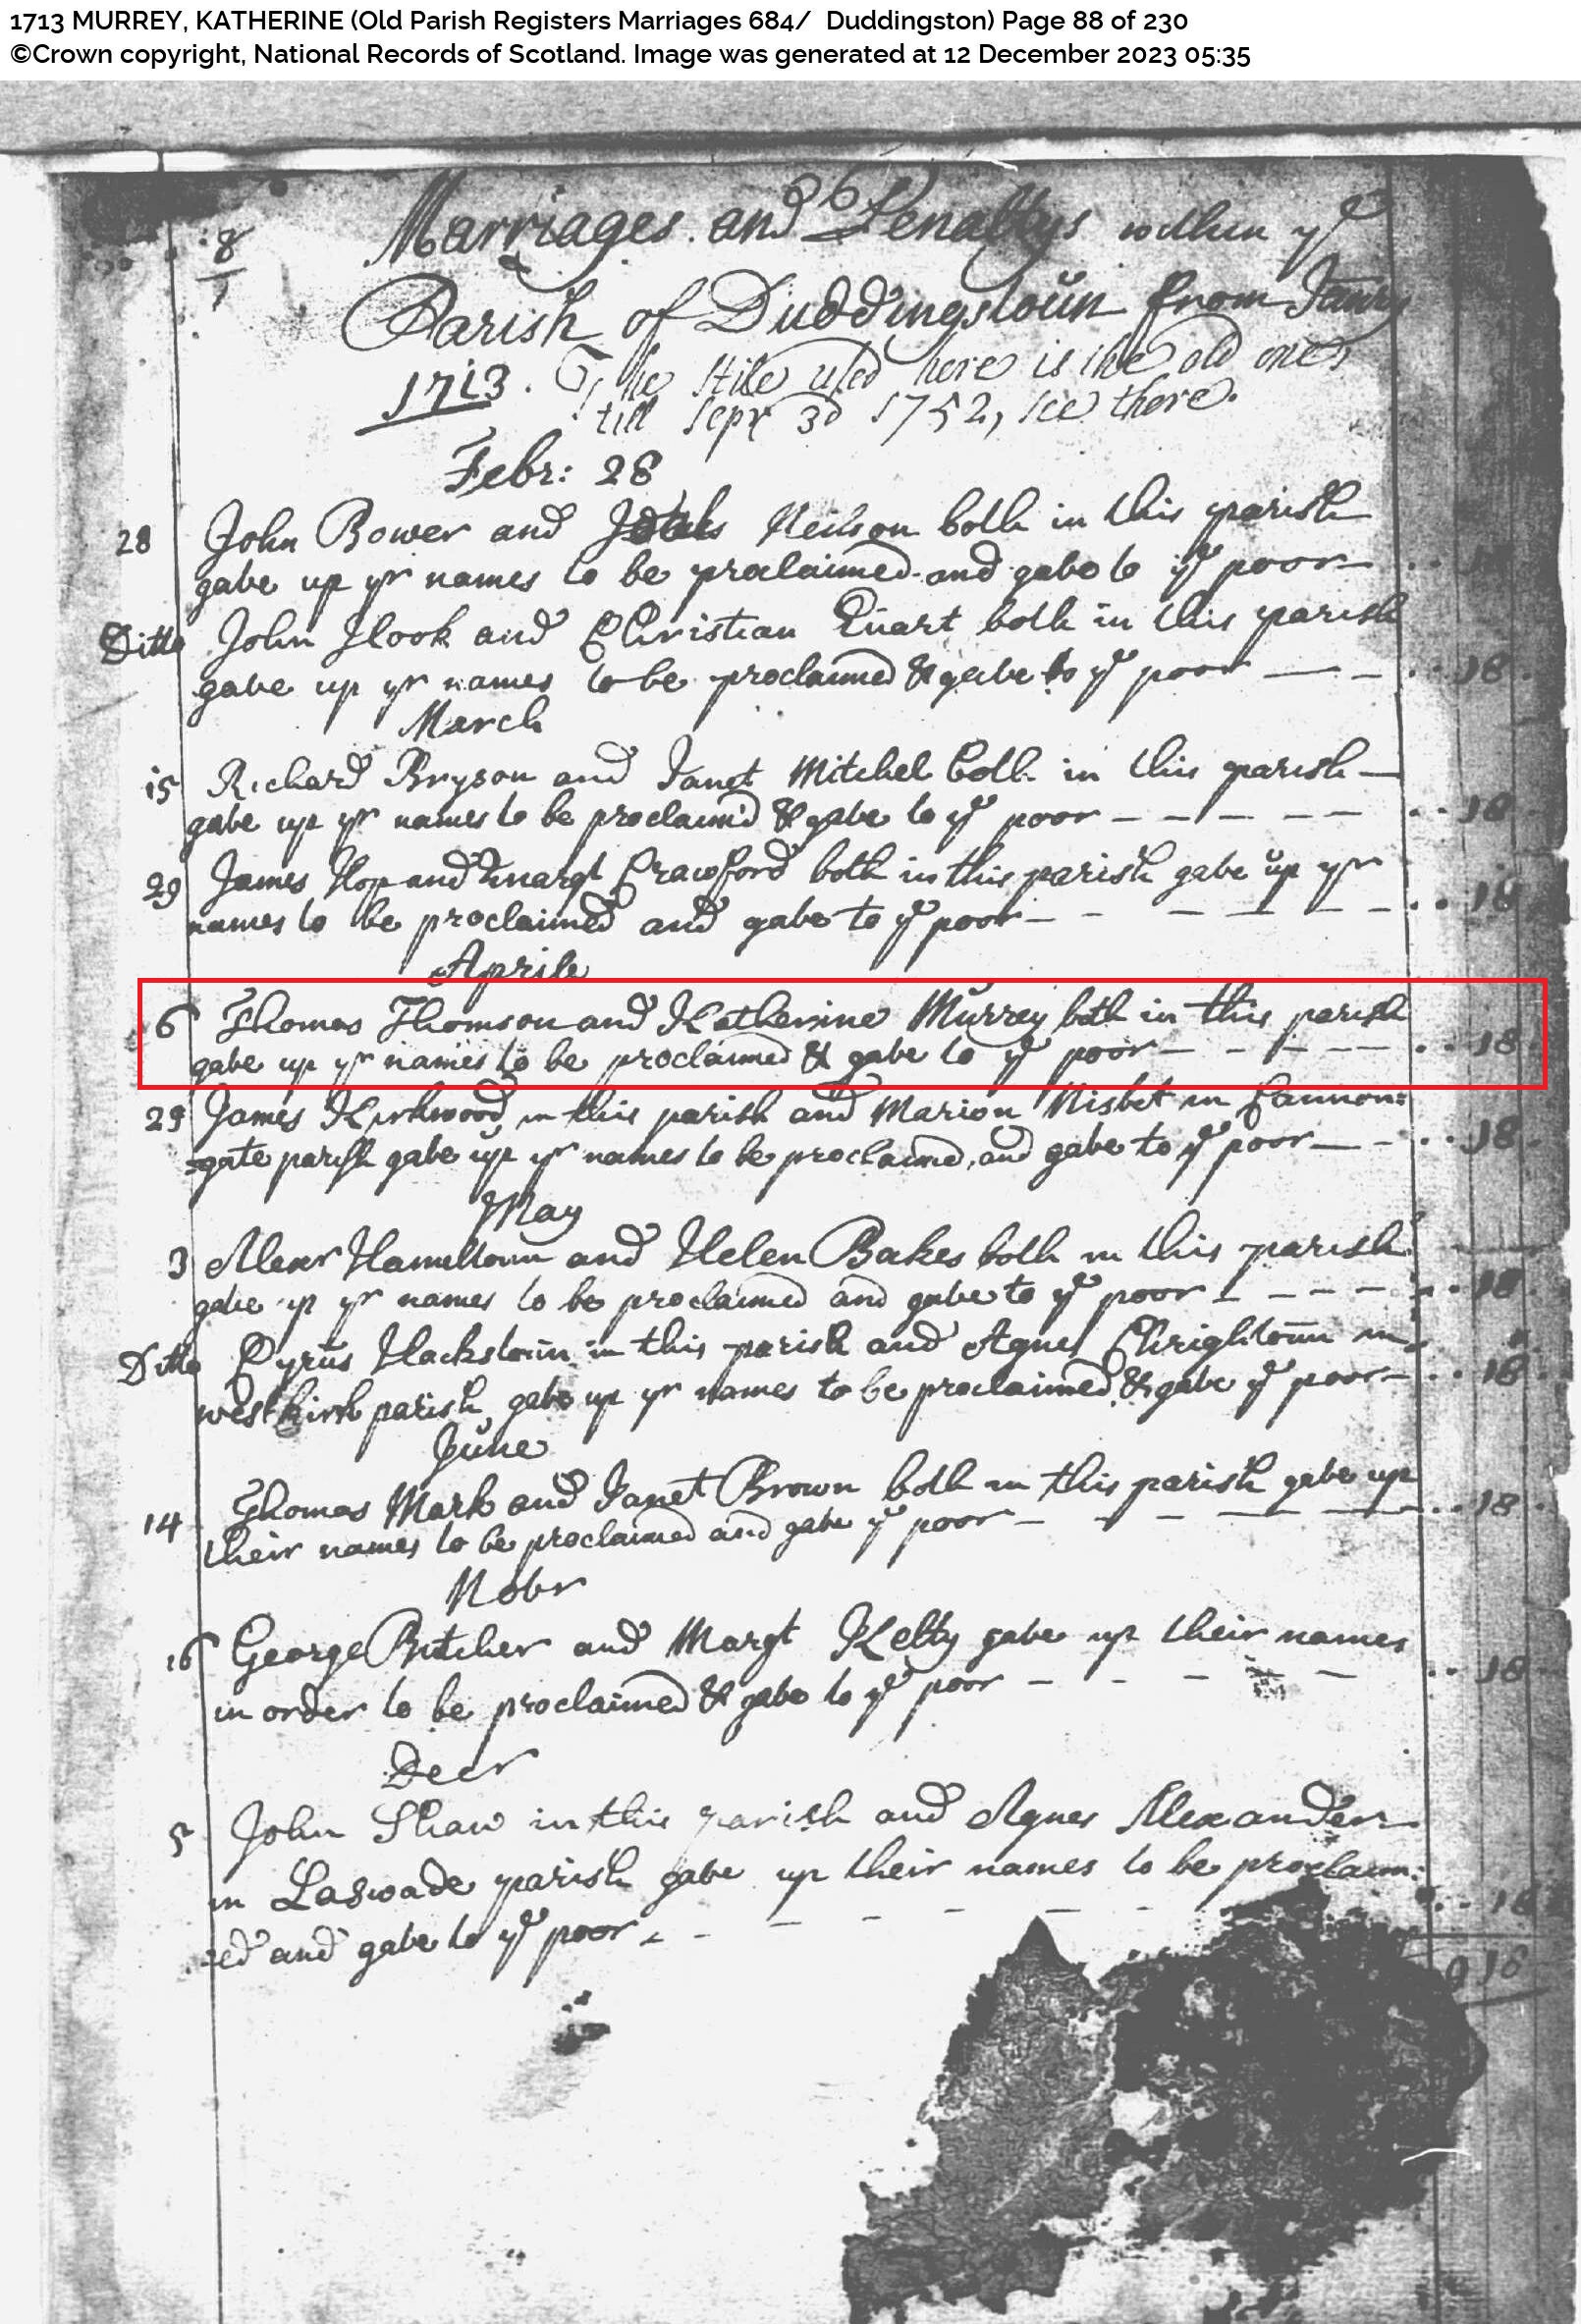 1713 MURREY, KATHERINE (Old Parish Registers Marriages 684/ Duddingston) Page 88 of 230
©Crown copyright, National Records of Scotland. Image was generated at 12 December 2023 05:35
Marriages and Penaltys within ye
Parish of Duddingstoun from Janry
1713. The stile used here is the old one,
till Sepr 3d 1752, see there.
Febr: 28
28 John Bower and Neilson both in this parish
gave up yr names to be proclaimed and gave to ye poor
Ditto John Hook and Christian both in this parish
gave up yr names to be proclaimed & gave to ye poor — – . . 18
March
15 Richard Bryson and Janet Mitchel both in this parish —
gave up yr names to be proclaim'd & gave to ye poor – – – – – . . 18
29 James Hop and Margt Crawford both in this parish gave up yr
names to be proclaimed and gave to ye poor – – – – – – . . 18
Aprile
6 Thomas Thomson and Katherine Murrey both in this parish
gave up yr names to be proclaimed & gave to ye poor – – – – – . . 18
29 James Kirkwood in this parish and Marion Nisbet in Cannon=
=gate parish gave up yr names to be proclaimed, and gave to ye poor — – . . 18
May
3 Alexr Hamiltoun and Helen Bakes both in this parish
gave up yr names to be proclaimed and gave to ye poor – – – – . . 18
Ditto Cyrus Hackstoun in this parish and Agnes Chrightoun in
westkirk parish gave up yr names to be proclaimed & gave ye poor – . . 18
June
14 Thomas Mark and Janet Brown both in this parish gave up
their names to be proclaimed and gave ye poor – – – — — . . 18
Nobr
16 George Butcher and Margt Kelty gave up their names
in order to be proclaimed & gave to ye poor – – – – . . 18
Decr
5 John Shaw in this parish and Agnes Alexander
in Laswade parish gave up their names to be proclaim:
:ed and gave to ye poor – – – – – – . . 18
918